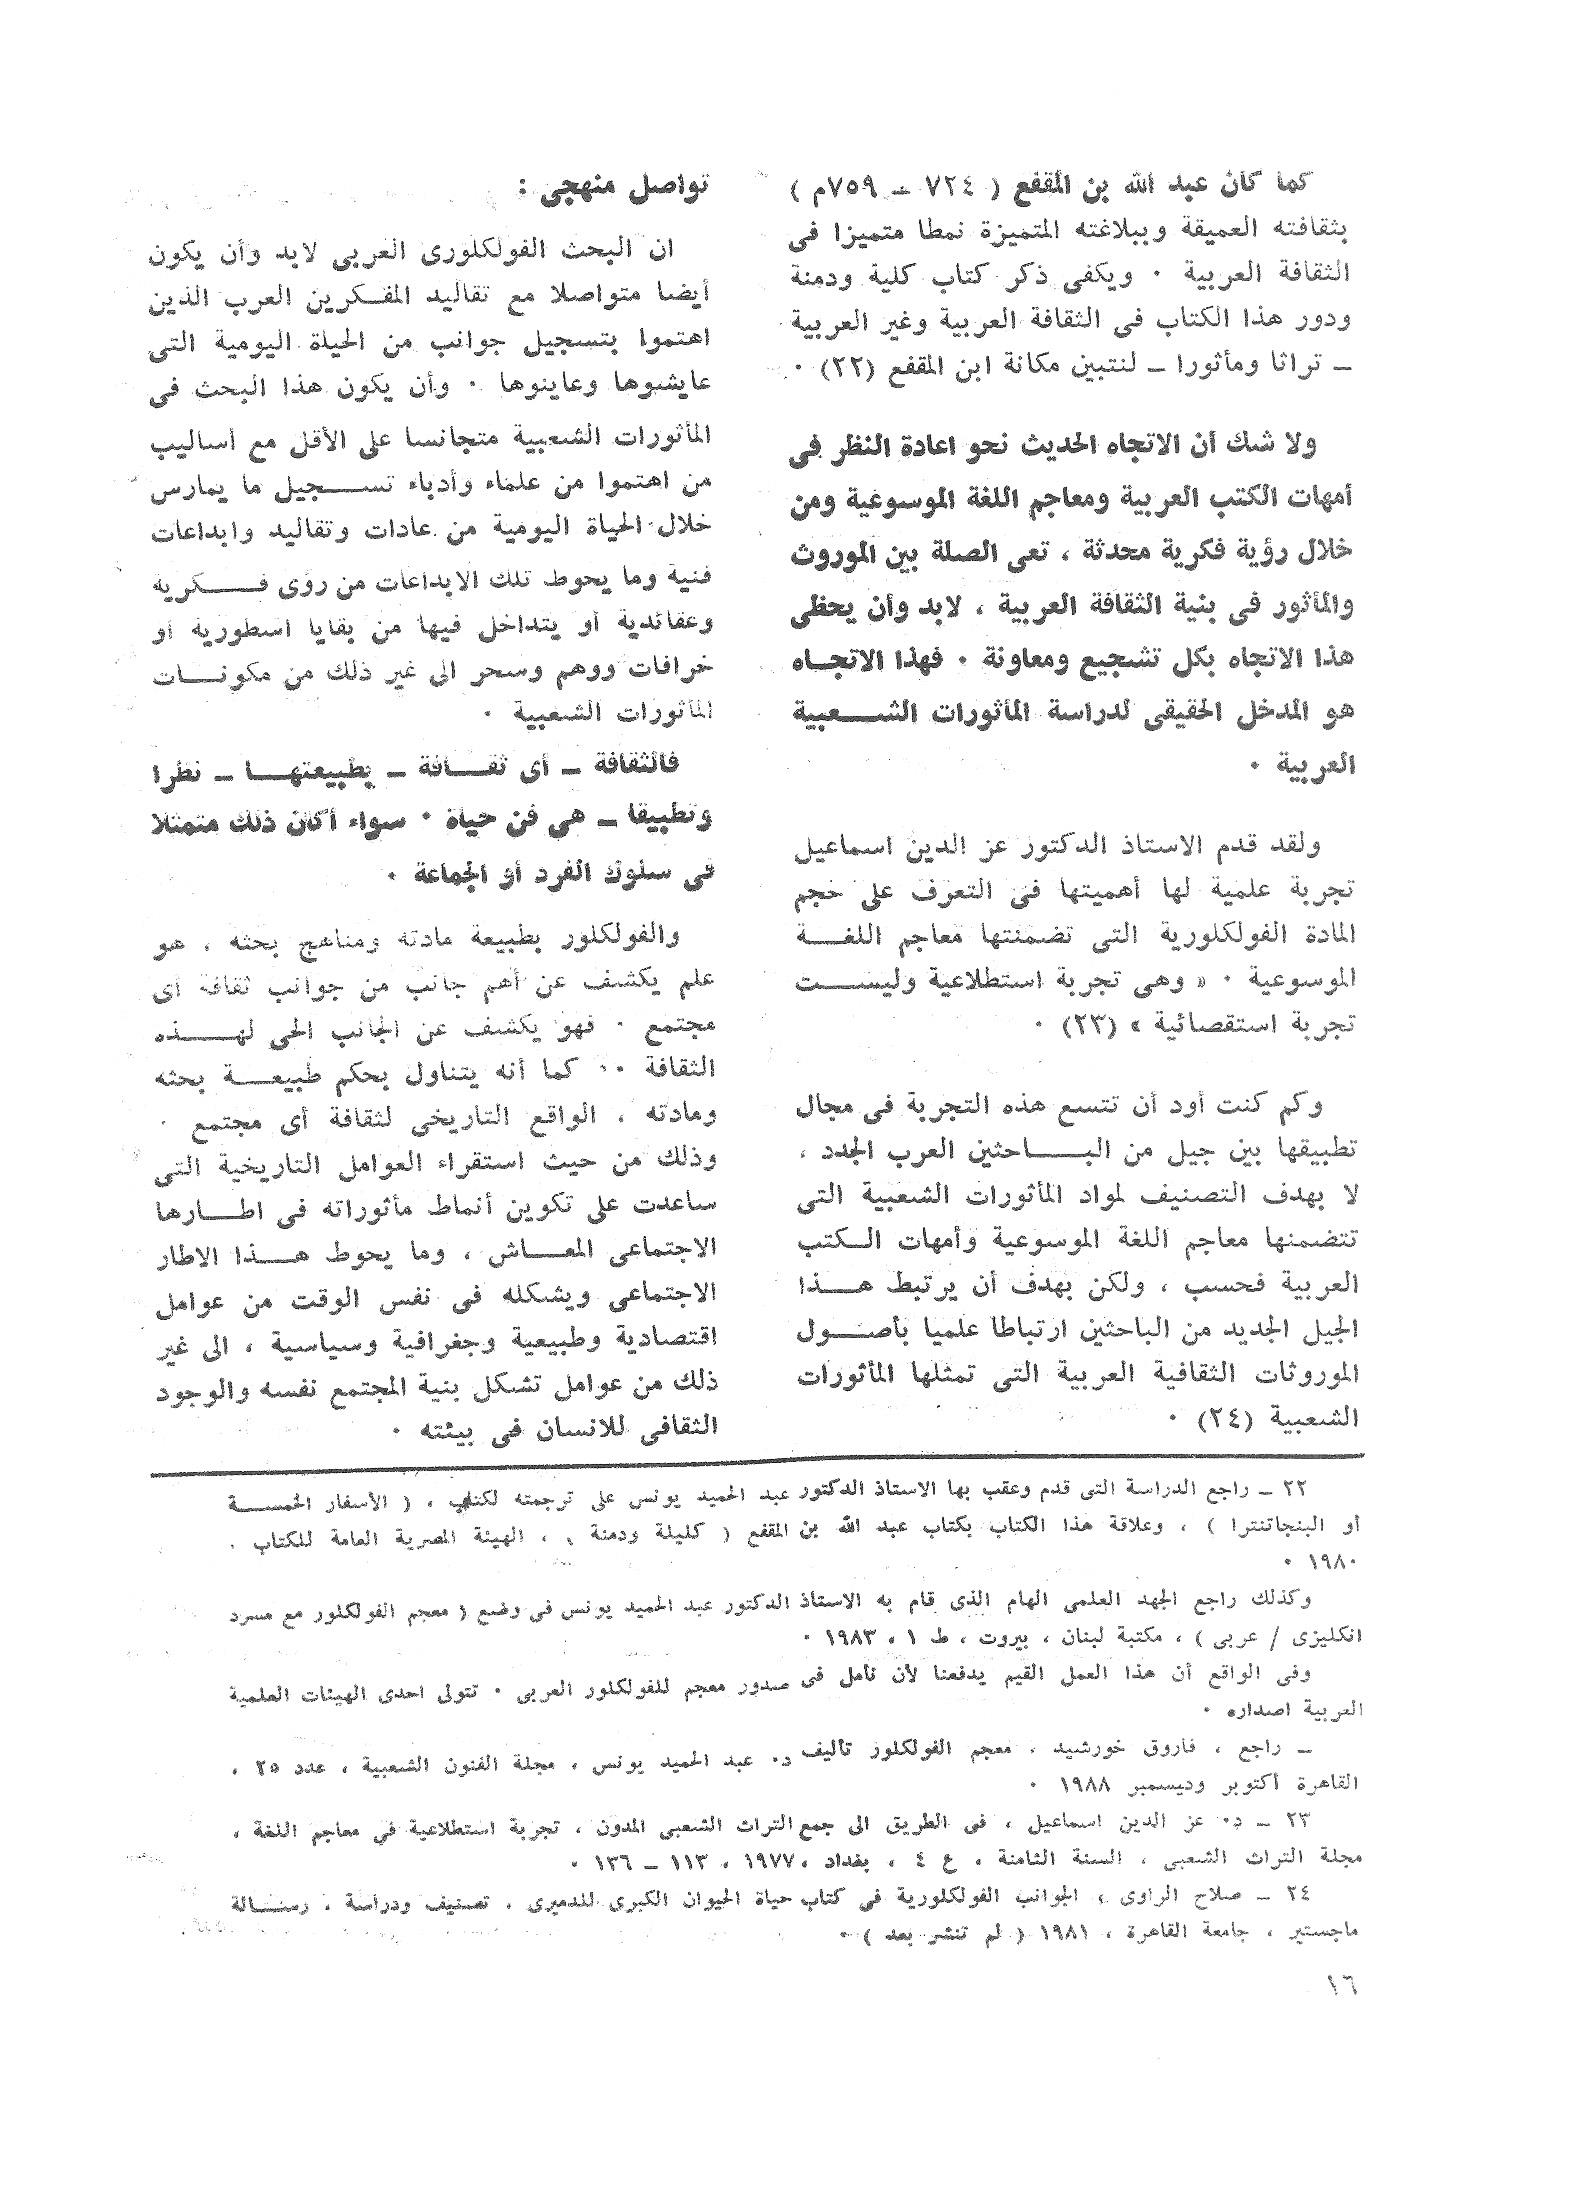 كما كان عبد الله بن المقفع ( ٧٢٤ ـ ٧٥٩م )
بثقافته العميقة وببلاغته المتميزة نمطا متميزا فى
الثقافة العربية ٠ ويكفى ذكر كتاب كلية ودمنة
ودور هذا الكتاب فى الثقافة العربية وغير العربية
ـ تراثا ومأثورا ـ لنتبين مكانة ابن المقفع (٢٢) ٠
ولا شك أن الاتجاه الحديث نحو اعادة النظر فى
أمهات الكتب العربية ومعاجم اللغة الموسوعية ومن
خلال رؤية فكرية محدثة ، تعى الصلة بين الموروث
والمأثور فى بنية الثقافة العربية ، لابد وأن يحظى
هذا الاتجاه بكل تشجيع ومعاونة ٠ فهذا الاتجاه
هو المدخل الحقيقى لدراسة المأثورات الشعبية
العربية ٠
ولقد قدم الاستاذ الدكتور عز الدين اسماعيل
تجربة علمية لها أهميتها فى التعرف على حجم
المادة الفولكلورية التى تضمنتها معاجم اللغة
الموسوعية ٠ « وهى تجربة استطلاعية وليست
تجربة استقصائية » (٢٣) ٠
وكم كنت أود أن تتسع هذه التجربة فى مجال
تطبيقها بين جيل من الباحثين العرب الجدد ،
لا بهدف التصنيف لمواد المأثورات الشعبية التى
تتضمنها معاجم اللغة الموسوعية وأمهات الكتب
العربية فحسب ، ولكن بهدف أن يرتبط هذا
الجيل الجديد من الباحثين ارتباطا علميا بأصول
الموروثات الثقافية العربية التى تمثلها المأثورات
الشعبية (٢٤) ٠
تواصل منهجى :
ان البحث الفولكلورى العربى لابد وأن يكون
أيضا متواصلا مع تقاليد المفكرين العرب الذين
اهتموا بتسجيل جوانب من الحياة اليومية التى
عايشوها وعاينوها ٠ وأن يكون هذا البحث فى
المأثورات الشعبية متجانسا على الأقل مع أساليب
من اهتموا من علماء وأدباء تسجيل ما يمارس
خلال الحياة اليومية من عادات وتقاليد وابداعات
فنية وما يحوط تلك الابداعات من رؤى فكرية
وعقائدية أو يتداخل فيها من بقايا اسطورية أو
خرافات ووهم وسحر الى غير ذلك من مكونات
المأثورات الشعبية ٠
فالثقافة ـ أى ثقافة ـ بطبيعتها ـ نظرا
وتطبيقا ـ هى فن حياة ٠ سواء أكان ذلك متمثلا
فى سلوك الفرد أو الجماعة ٠
والفولكلور بطبيعة مادته ومناهج بحثه ، هو
علم يكشف عن أهم جانب من جوانب ثقافة أى
مجتمع ٠ فهو يكشف عن الجانب الحى لهذه
الثقافة ٠٠ كما أنه يتناول بحكم طبيعة بحثه
ومادته ، الواقع التاريخى لثقافة أى مجتمع ٠
وذلك من حيث استقراء العوامل التاريخية التى
ساعدت على تكوين أنماط مأثوراته فى اطارها
الاجتماعى المعاش ، وما يحوط هذا الاطار
الاجتماعى ويشكله فى نفس الوقت من عوامل
اقتصادية وطبيعية وجغرافية وسياسية ، الى غير
ذلك من عوامل تشكل بنية المجتمع نفسه والوجود
الثقافى للانسان فى بيئته ٠
٢٢ ـ راجع الدراسة التى قدم وعقب بها الاستاذ الدكتور عبد الحميد يونس على ترجمته لكتاب ، ( الأسفار الخمسة
أو البنجاتنترا ) ، وعلاقة هذا الكتاب بكتاب عبد الله بن المقفع ( كليلة ودمنة ) ، الهيئة المصرية العامة للكتاب ٠
١٩٨٠ ٠
وكذلك راجع الجهد العلمى الهام الذى قام به الاستاذ الدكتور عبد الحميد يونس فى وضع ( معجم الفولكلور مع مسرد
انكليزى / عربى ) ، مكتبة لبنان ، بيروت ، ط ١ ، ١٩٨٣ ٠
وفى الواقع أن هذا العمل القيم يدفعنا لأن نأمل فى صدور معجم للفولكلور العربى ٠ تتولى احدى الهيئات العلمية
العربية اصداره ٠
ـ راجع ، فاروق خورشيد ، معجم الفولكلور تأليف د٠ عبد الحميد يونس ، مجلة الفنون الشعبية ، عدد ٢٥ ،
القاهرة أكتوبر وديسمبر ١٩٨٨ ٠
٢٣ ـ د٠ عز الدين اسماعيل ، فى الطريق الى جمع التراث الشعبى المدون ، تجربة استطلاعية فى معاجم اللغة ،
مجلة التراث الشعبى ، السنة الثامنة ، ع ٤ ، بغداد ، ١٩٧٧ ، ١١٣ ـ ١٣٦ ٠
٢٤ ـ صلاح الراوى ، الجوانب الفولكلورية فى كتاب حياة الحيوان الكبرى للدميرى ، تصنيف ودراسة ، رسالة
ماجستير ، جامعة القاهرة ، ١٩٨١ ( لم تنشر بعد ) ٠
١٦